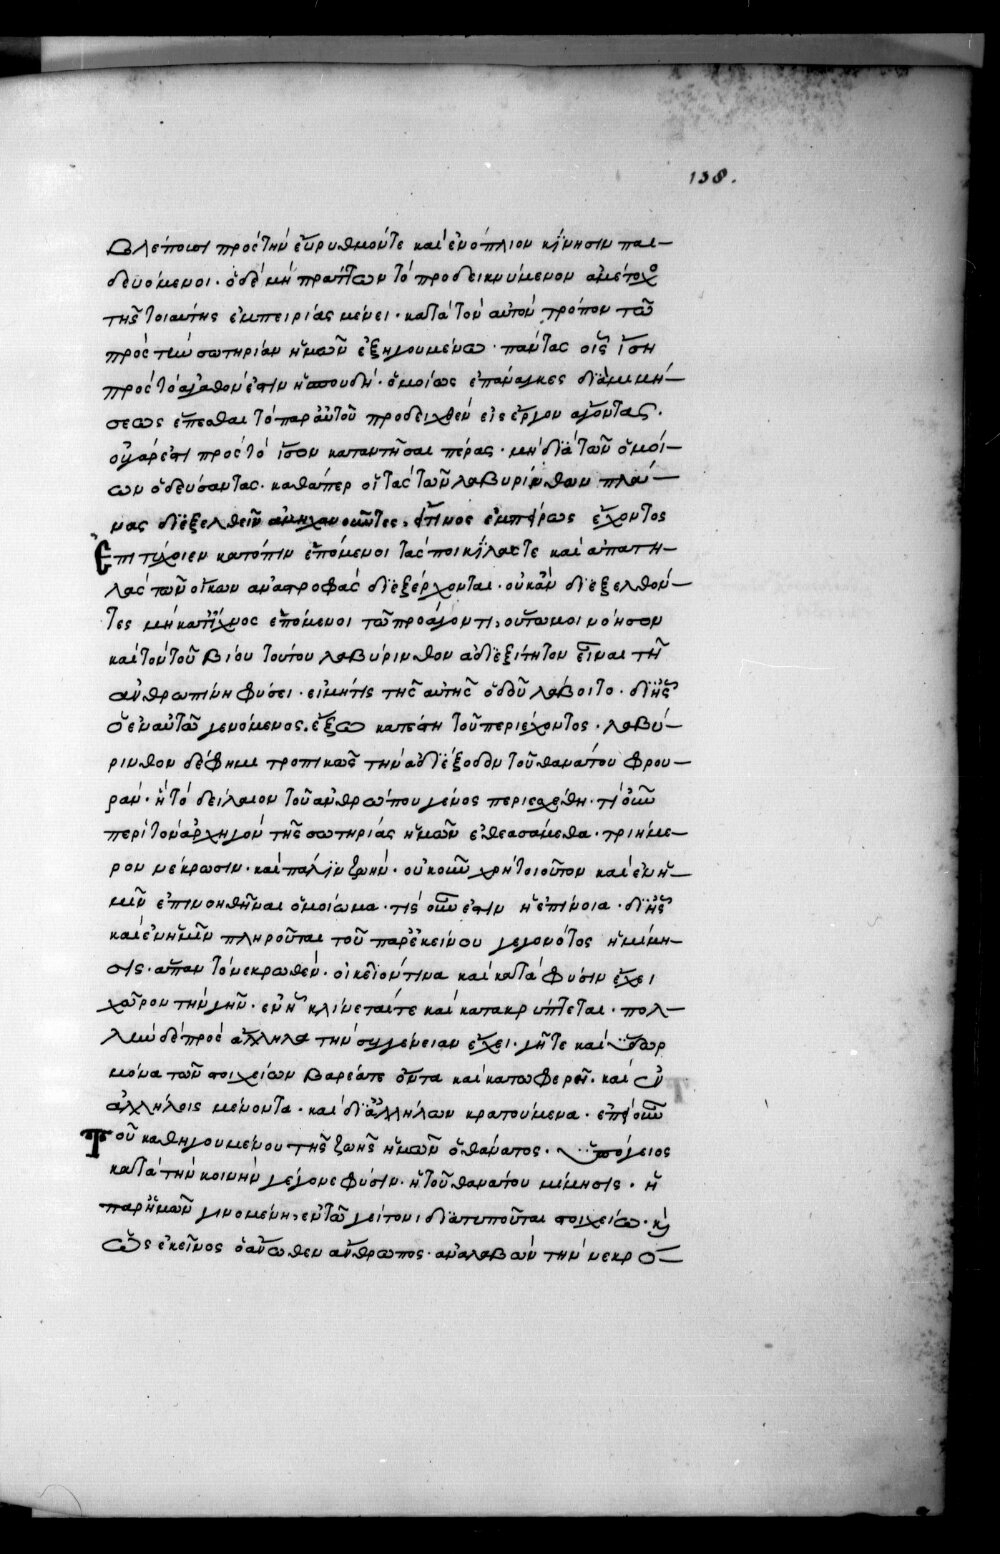 138.
βλέπωσι πρὸς τὴν εὔρυθμόν τε καὶ ἐνόπλιον κίνησιν παι-
δευόμενοι· ὁ δὲ μὴ πράττων τὸ προδεικνύμενον ἀμέτοχος
τῆς τοιαύτης ἐμπειρίας μένει· κατὰ τὸν αὐτὸν τρόπον τῶ
πρὸς τὴν σωτηρίαν ἡμῶν ἐξηγουμένω· πάντας οἷς ἴση
πρὸς τὸ ἀγαθόν ἐστιν ἡ σπουδή· ὁμοίως ἐπάναγκες διὰ μιμή-
σεως ἕπεσθαι τὸ παρ' αὐτοῦ προδειχθὲν εἰς ἔργον ἄγοντας.
οὐ γάρ ἐστι πρὸς τὸ ἴσον καταντῆσαι πέρας· μὴ διὰ τῶν ὁμοί-
ων ὁδεύσαντας· καθάπερ οἱ τὰς τῶν λαβυρίνθων πλά-
νας διεξελθεῖν ἀμηχανοῦντες, εἴ τινος ἐμπείρως ἔχοντος
ἐπιτύχοιεν κατόπιν ἑπόμενοι τὰς ποικίλας τε καὶ ἀπατη-
λὰς τῶν οἴκων ἀναστροφὰς διεξέρχονται· οὐκ ἂν διεξελθόν-
τες μὴ κατ' ἴχνος ἑπόμενοι τῶ προάγοντι, οὕτω μοι νόησον
καὶ τὸν τοῦ βίου τούτου λαβύρινθον ἀδιεξίτητον εἶναι τῆ
ἀνθρωπίνη φύσει· εἰ μή τις τῆς αὐτῆς ὁδοῦ λάβοιτο· δι' ἧς
ὁ ἐν αὐτῶ γενόμενος· ἔξω κατέστη τοῦ περιέχοντος· λαβύ-
ρινθον δέ φημι τροπικῶς τὴν ἀδιέξοδον τοῦ θανάτου φρου-
ράν· ἧ τὸ δείλαιον τοῦ ἀνθρώπου γένος περιεσχέθη· τί οὖν
περὶ τὸν ἀρχηγὸν τῆς σωτηρίας ἡμῶν ἐθεασάμεθα· τριήμε-
ρον νέκρωσιν· καὶ πάλιν ζωήν· οὐκοῦν χρή τι τοιοῦτον καὶ ἐν ἡ-
μῖν ἐπινοηθῆναι ὁμοίωμα· τίς οὖν ἐστιν ἡ ἐπίνοια· δι' ἧς
καὶ ἐν ἡμῖν πληροῦται τοῦ παρ' ἐκείνου γεγονότος ἡ μίμη-
σις· ἅπαν τὸ νεκρωθέν· οἰκεῖόν τινα καὶ κατὰ φύσιν ἔχει
χῶρον τὴν γῆν· ἐν ἧ κλίνεταί τε καὶ κατακρύπτεται· πολ-
λὴν δὲ πρὸς ἄλληλα τὴν συγγένειαν ἔχει· γῆ τε καὶ ὕδωρ
μόνα τῶν στοιχείων βαρέα τε ὄντα καὶ κατωφερῆ· καὶ ἐν
ἀλλήλοις μένοντα· καὶ δι' ἀλλήλων κρατούμενα· ἐπεὶ οὖν
τοῦ καθηγουμένου τῆς ζωῆς ἡμῶν ὁ θάνατος· ὑπόγειος
κατὰ τὴν κοινὴν γέγονε φύσιν· ἡ τοῦ θανάτου μίμησις· ἡ
παρ' ἡμῶν γινομένη, ἐν τῶ γείτονι διατυποῦται στοιχείω· καὶ
ὡς ἐκεῖνος ὁ ἄνωθεν ἄνθρωπος· ἀναλαβὼν τὴν νεκρό-